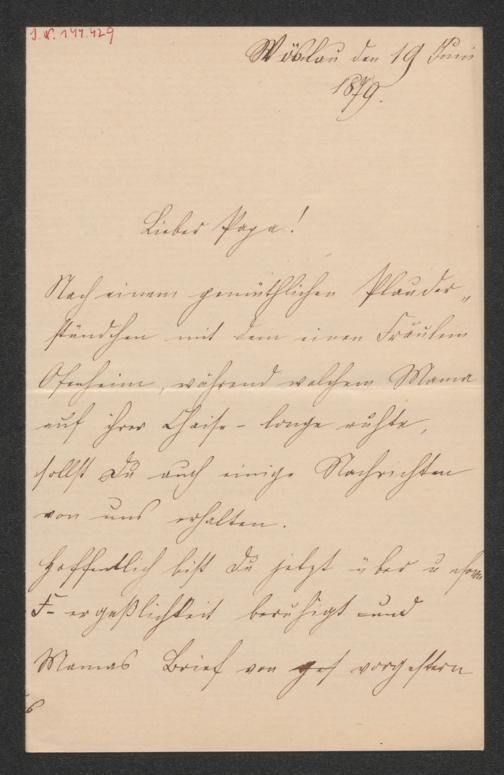 I.N. 144.429
Vöslau den 19 Juni
1879.
Lieber Papa!
Nach einem gemüthlichen Plauder„
stündchen mit dem einen Fräulein
Ofenheim, während welchem Mama
auf ihrer Chaise-longe ruhte,
sollst Du auch einige Nachrichten
von uns erhalten.
Hoffentlich bist Du jetzt über unsere
Vergeßlichkeit beruhigt und
Mamas Brief von vorgestern